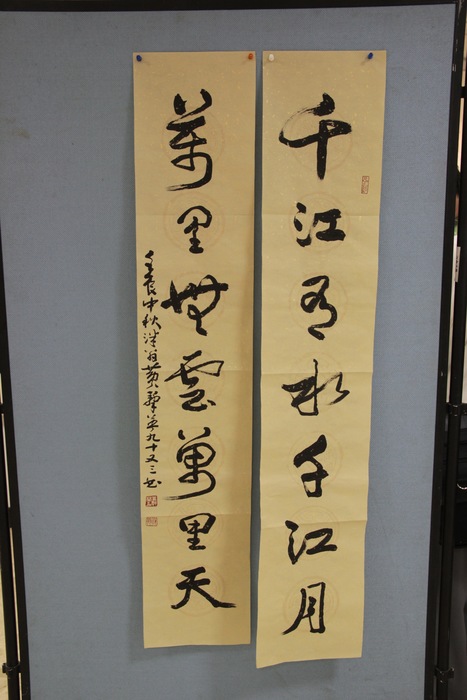 千江有水千江月
萬里無雲萬里天
壬辰中秋 黃 年九十又三書